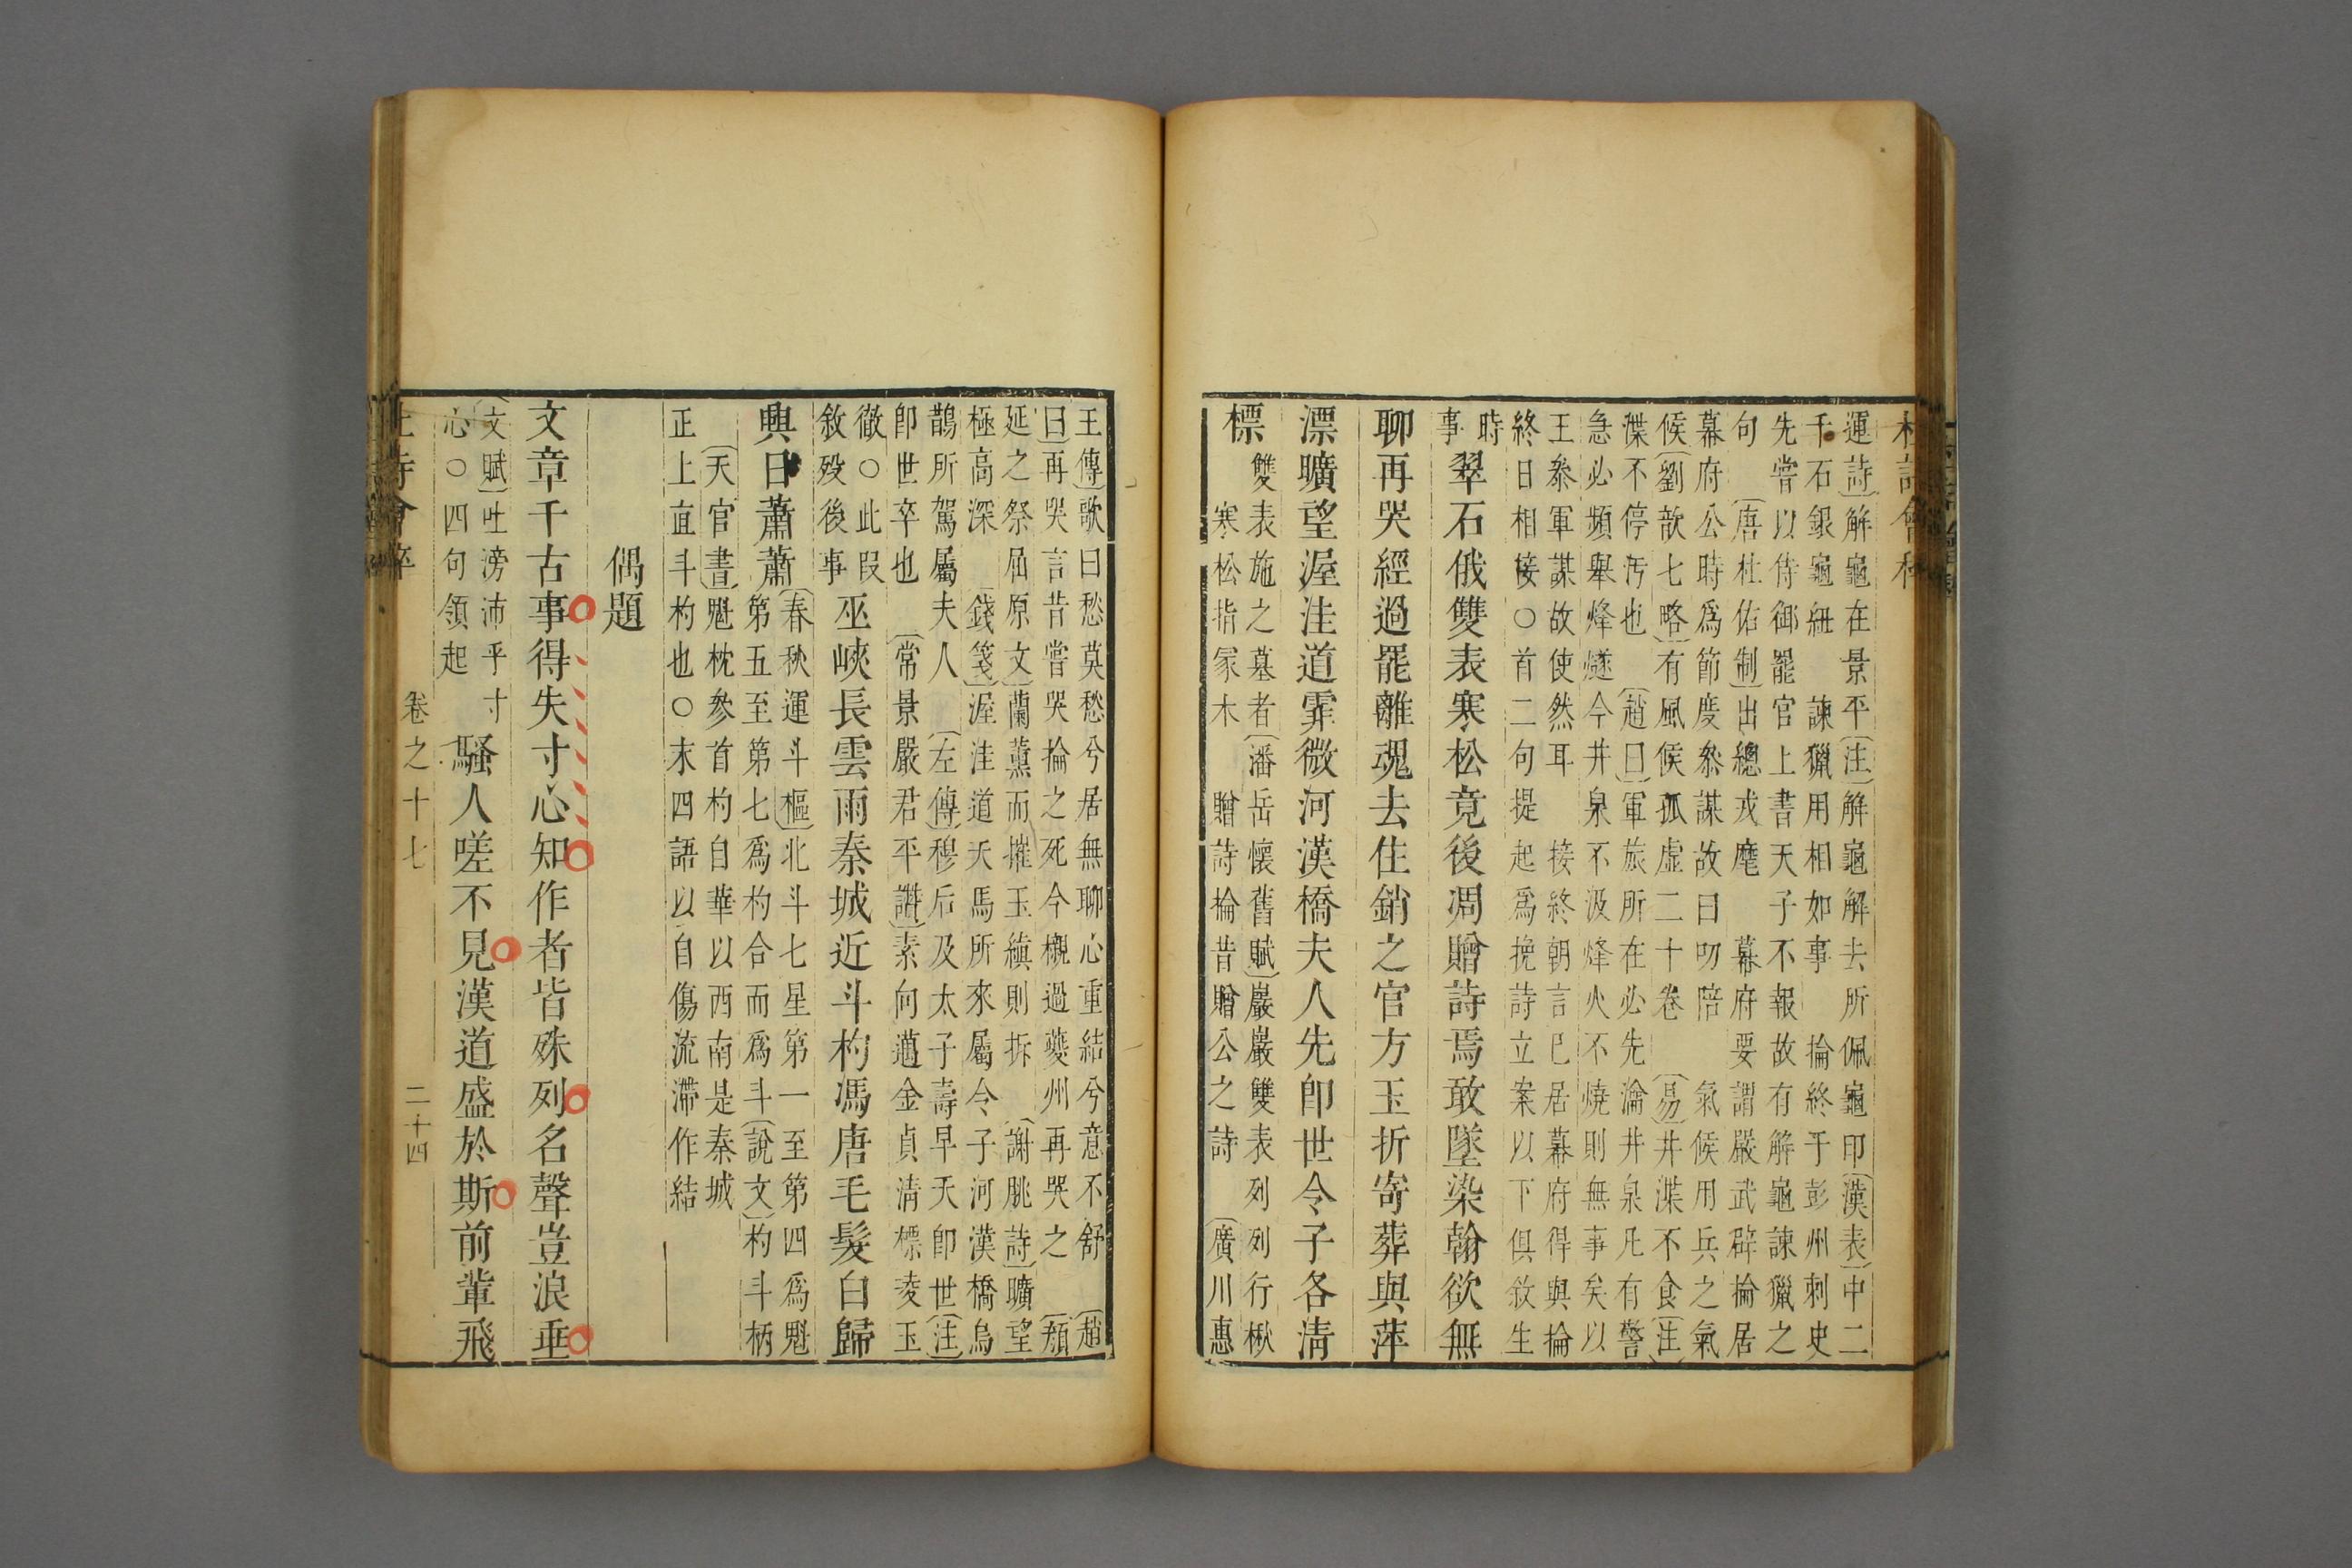 杜詩會稡
運詩〕解龜在景平〔注〕解龜解去所佩龜印〔漢表〕中二
千石銀龜紐　諫獵用相如事　掄終于彭州刺史
先嘗以侍御罷官上書天子不報故有解龜諫獵之
句　〔唐杜佑制〕出總戎麾　幕府要謂嚴武辟掄居
幕府公時爲節度叅謀故曰叨陪　氣候用兵之氣
候〔劉歆七略〕有風候孤虛二十卷　〔易〕井渫不食〔注〕
渫不停汚也　〔趙曰〕軍旅所在必先瀹井泉凡有警
急必頻舉烽燧今井泉不汲烽火不燒則無事矣以
王叅軍謀故使然耳　接終朝言已居幕府得與掄
終日相接○首二句提起爲挽詩立案以下俱敘生
時
事　翠石俄雙表寒松竟後凋贈詩焉敢墜染翰欲無
聊再哭經過罷離魂去住銷之官方玉折寄葬與萍
漂曠望渥洼道霏微河漢橋夫人先卽世令子各清
標　雙表施之墓者〔潘岳懷舊賦〕巖巖雙表列列行楸
寒松指冢木　贈詩掄昔贈公之詩　〔廣川惠
王傳〕歌曰愁莫愁兮居無聊心重結兮意不舒　〔趙
曰〕再哭言昔嘗哭掄之死今櫬過夔州再哭之　〔顏
延之祭屈原文〕蘭薰而摧玉縝則折　〔謝朓詩〕曠望
極高深　〔錢箋〕渥洼道天馬所來屬令子河漢橋烏
鵲所駕屬夫人　〔左傳〕穆后及太子壽早夭卽世〔注〕
卽世卒也　〔常景嚴君平讚〕素向邁金貞清標凌玉
徹○此段
敘歿後事　巫峽長雲雨秦城近斗杓馮唐毛髮白歸
興日蕭蕭　〔春秋運斗樞〕北斗七星第一至第四爲魁
第五至第七爲杓合而爲斗〔說文〕杓斗柄
〔天官書〕魁枕參首杓自華以西南是秦城
正上直斗杓也○末四語以自傷流滯作結
偶題
文章千古事得失寸心知作者皆殊列名聲豈浪垂
〔文賦〕吐滂沛乎寸
心○四句領起　騷人嗟不見漢道盛於斯前輩飛
杜詩會稡　卷之十七　二十四